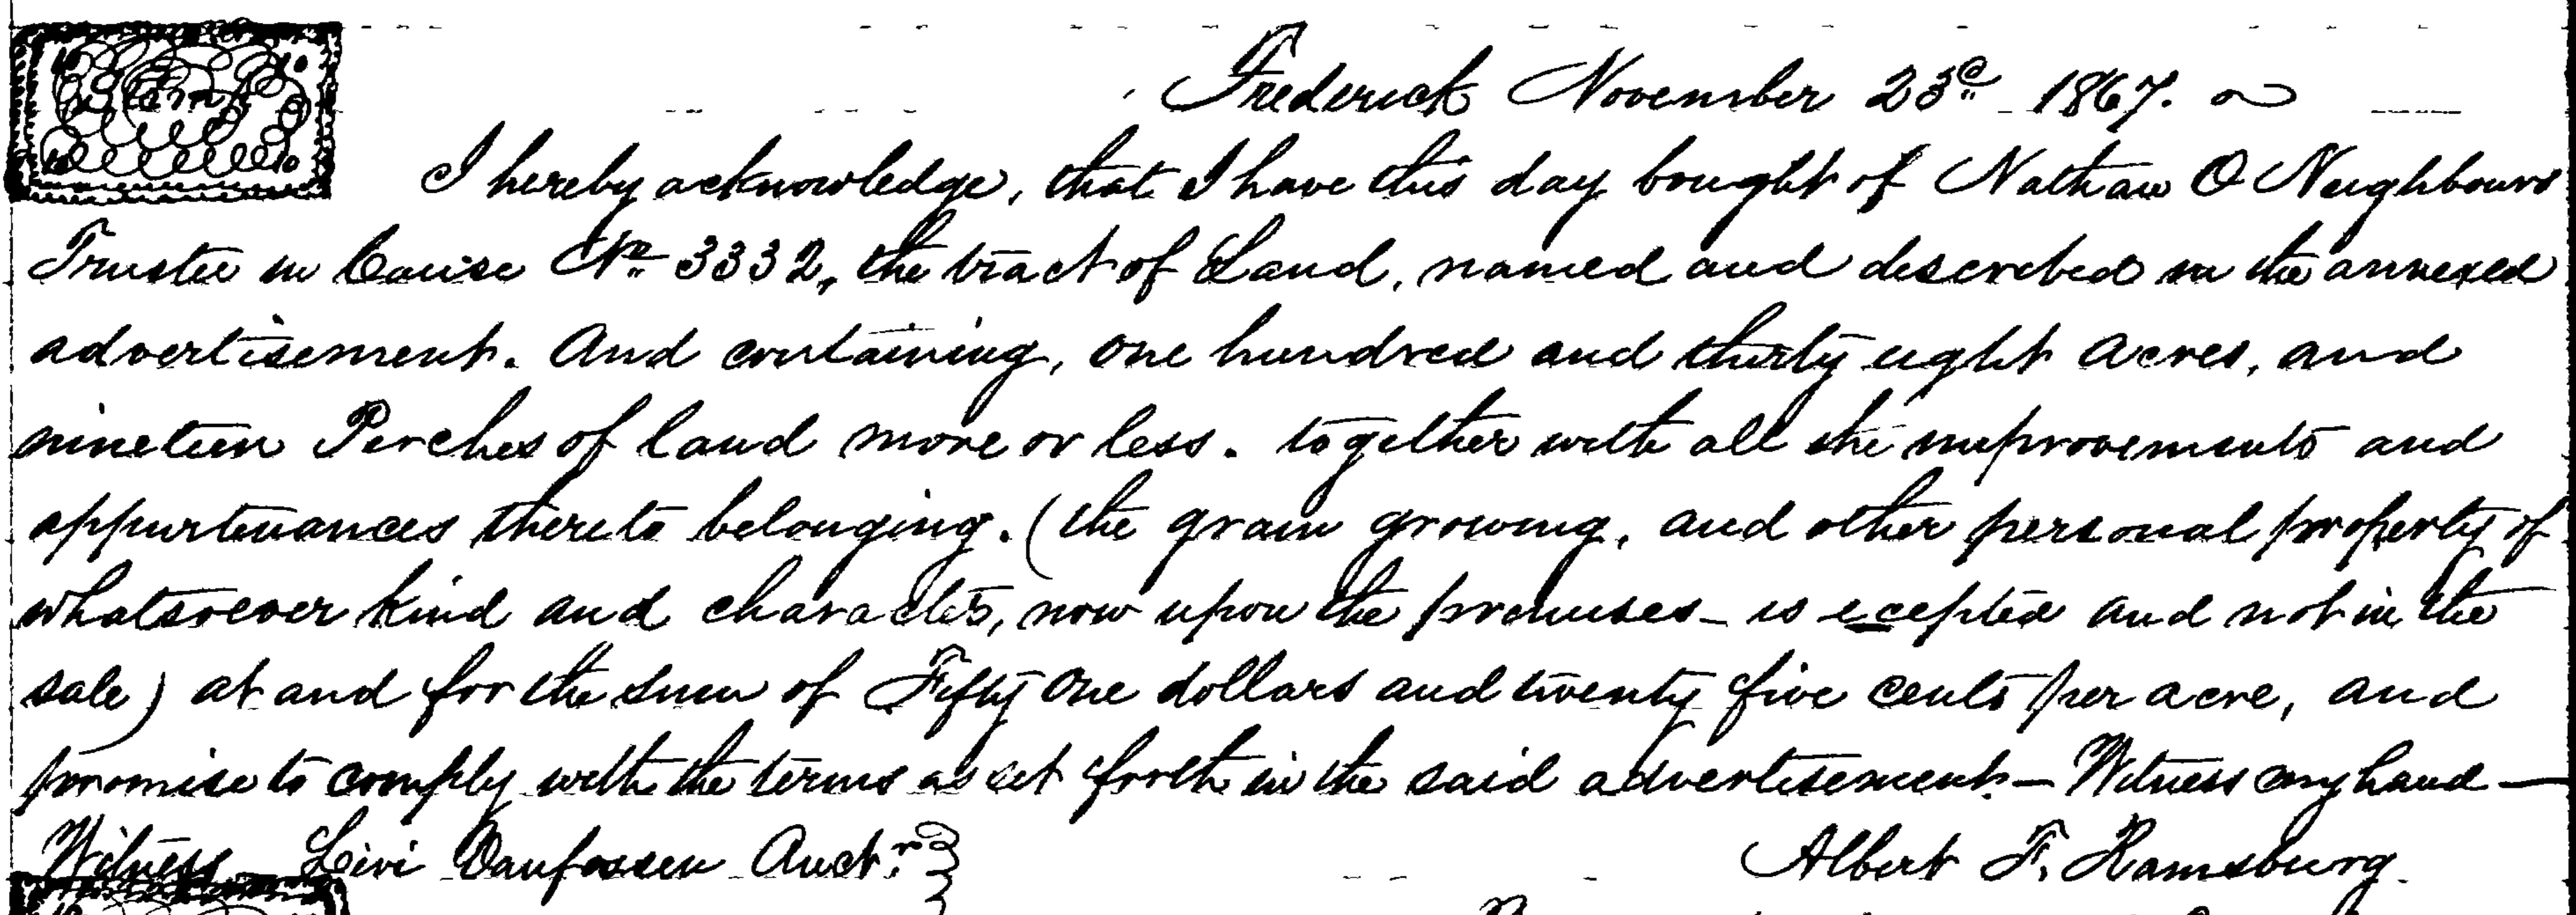 Frederick November 23d 1867.
I hereby acknowledge, that I have this day bought of Nathan O Neighbours
Trustee in Cause No 3332, the tract of Land, named and described in the annexed
advertisement. And containing, one hundred and thirty eight acres, and
nineteen Perches of land more or less. together with all the improvements and
appurtenances thereto belonging. (the grain growing, and other personal property of
whatsoever kind and character, now upon the premises - is ecepted and not in the
sale) at and for the sum of Fifty One dollars and twenty five cents per acre, and
promise to comply with the terms as set forth in the said advertisement - Witness my hand -
Witness Levi Vanfossen Auctr
Albert F. Ramsburg